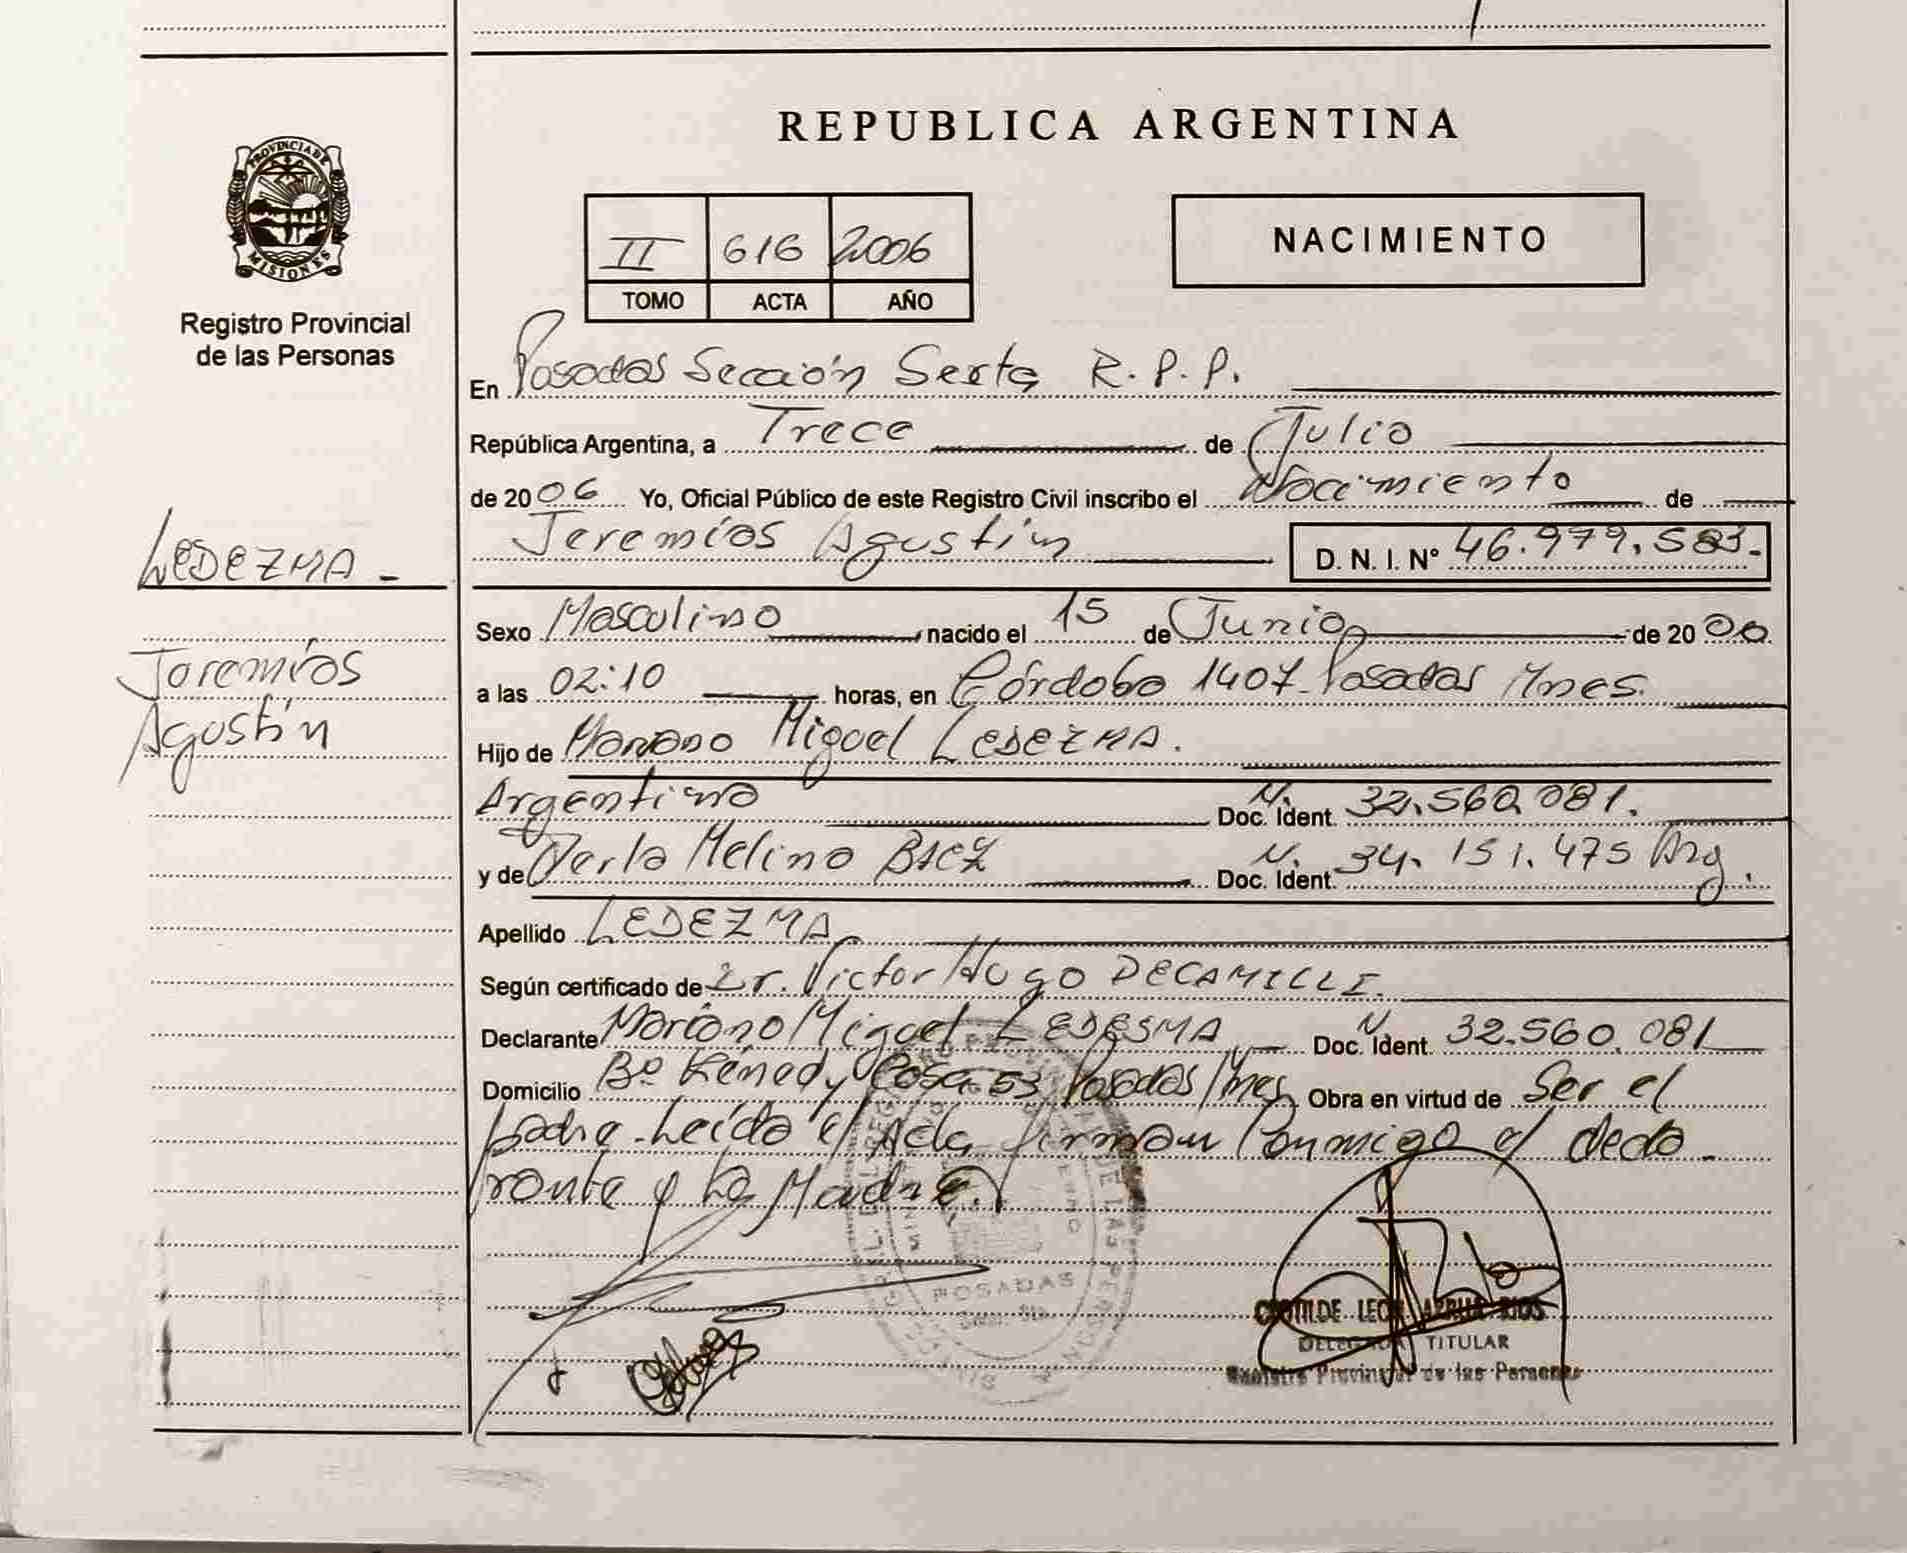 REPUBLICA ARGENTINA
PROVINCIA DE
MISIONES
Registro Provincial
de las Personas
II 616 2006
TOMO ACTA AÑO
NACIMIENTO
En Posadas Sección Sexta R.P.P.
República Argentina, a Trece de Julio
de 2006 Yo, Oficial Público de este Registro Civil inscribo el Nacimiento de
Jeremías Agustín D. N. I. Nº 46.979.583.-
LEDEZMA -
Jeremías
Agustín
Sexo Masculino nacido el 15 de Junio de 2006
a las 02:10 horas, en Córdoba 1407 Posadas Mnes.
Hijo de Mariano Miguel LEDEZMA.
Argentino Doc. Ident. N. 32.560.081.
y de Perla Melina BAEZ Doc. Ident. N. 34.151.475 Arg.
Apellido LEDEZMA
Según certificado de Dr. Victor Hugo DECAMILLI.
Declarante Mariano Miguel LEDESMA Doc. Ident. N 32.560.081
Domicilio Bº Kénedy Casa 53 Posadas Mnes Obra en virtud de Ser el
padre. Leída el Acta firman Conmigo el decla-
rante y La Madre.
POSADAS
CLOTILDE LEON RIOS
DELEGADA TITULAR
Registro Provincial de las Personas